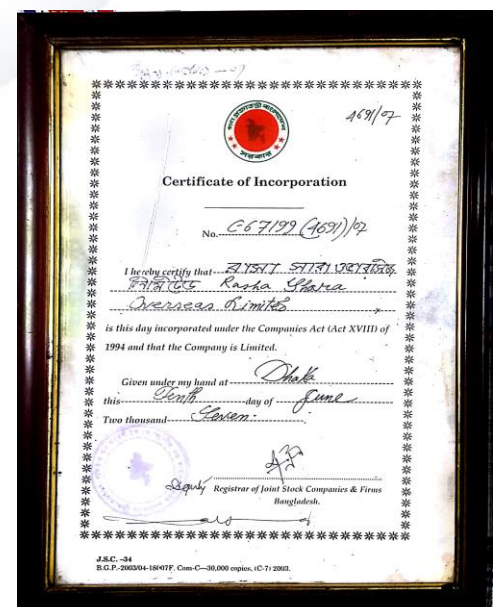 4691/07
গণপ্রজাতন্ত্রী বাংলাদেশ
সরকার
Certificate of Incorporation
No. C-67199 (4691)/07
I hereby certify that রাশা সারা ওভারসিজ
লিমিটেড Rasha Shara
Overseas Limited
is this day incorporated under the Companies Act (Act XVIII) of
1994 and that the Company is Limited.
Given under my hand at Dhaka
this Tenth day of June
Two thousand Seven.
Deputy Registrar of Joint Stock Companies & Firms
Bangladesh.
J.S.C. –34
B.G.P.-2003/04-18007F. Com-C—30,000 copies, (C-7) 2003.